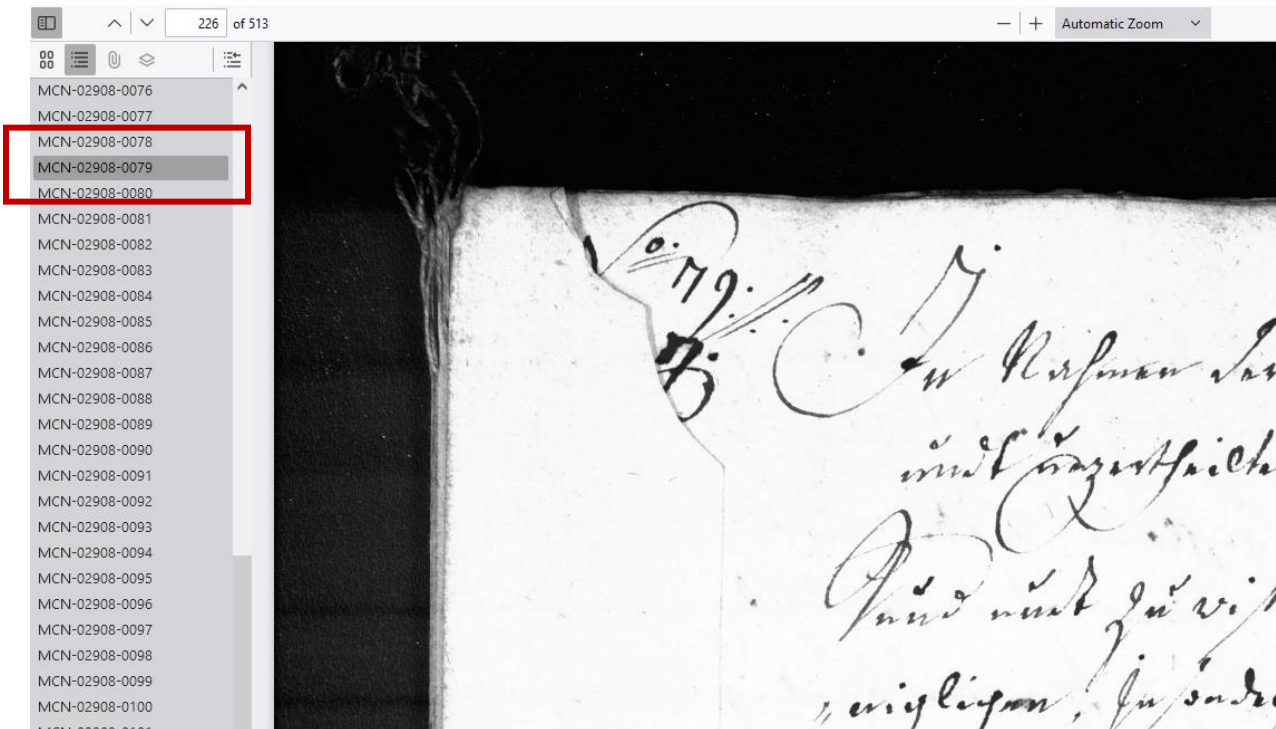 226 of 513
Automatic Zoom
MCN-02908-0076
MCN-02908-0077
MCN-02908-0078
MCN-02908-0079
MCN-02908-0080
MCN-02908-0081
MCN-02908-0082
MCN-02908-0083
MCN-02908-0084
MCN-02908-0085
MCN-02908-0086
MCN-02908-0087
MCN-02908-0088
MCN-02908-0089
MCN-02908-0090
MCN-02908-0091
MCN-02908-0092
MCN-02908-0093
MCN-02908-0094
MCN-02908-0095
MCN-02908-0096
MCN-02908-0097
MCN-02908-0098
MCN-02908-0099
MCN-02908-0100
79.
In Nahmen der
undt unzertheilte
Kund undt zu wiß